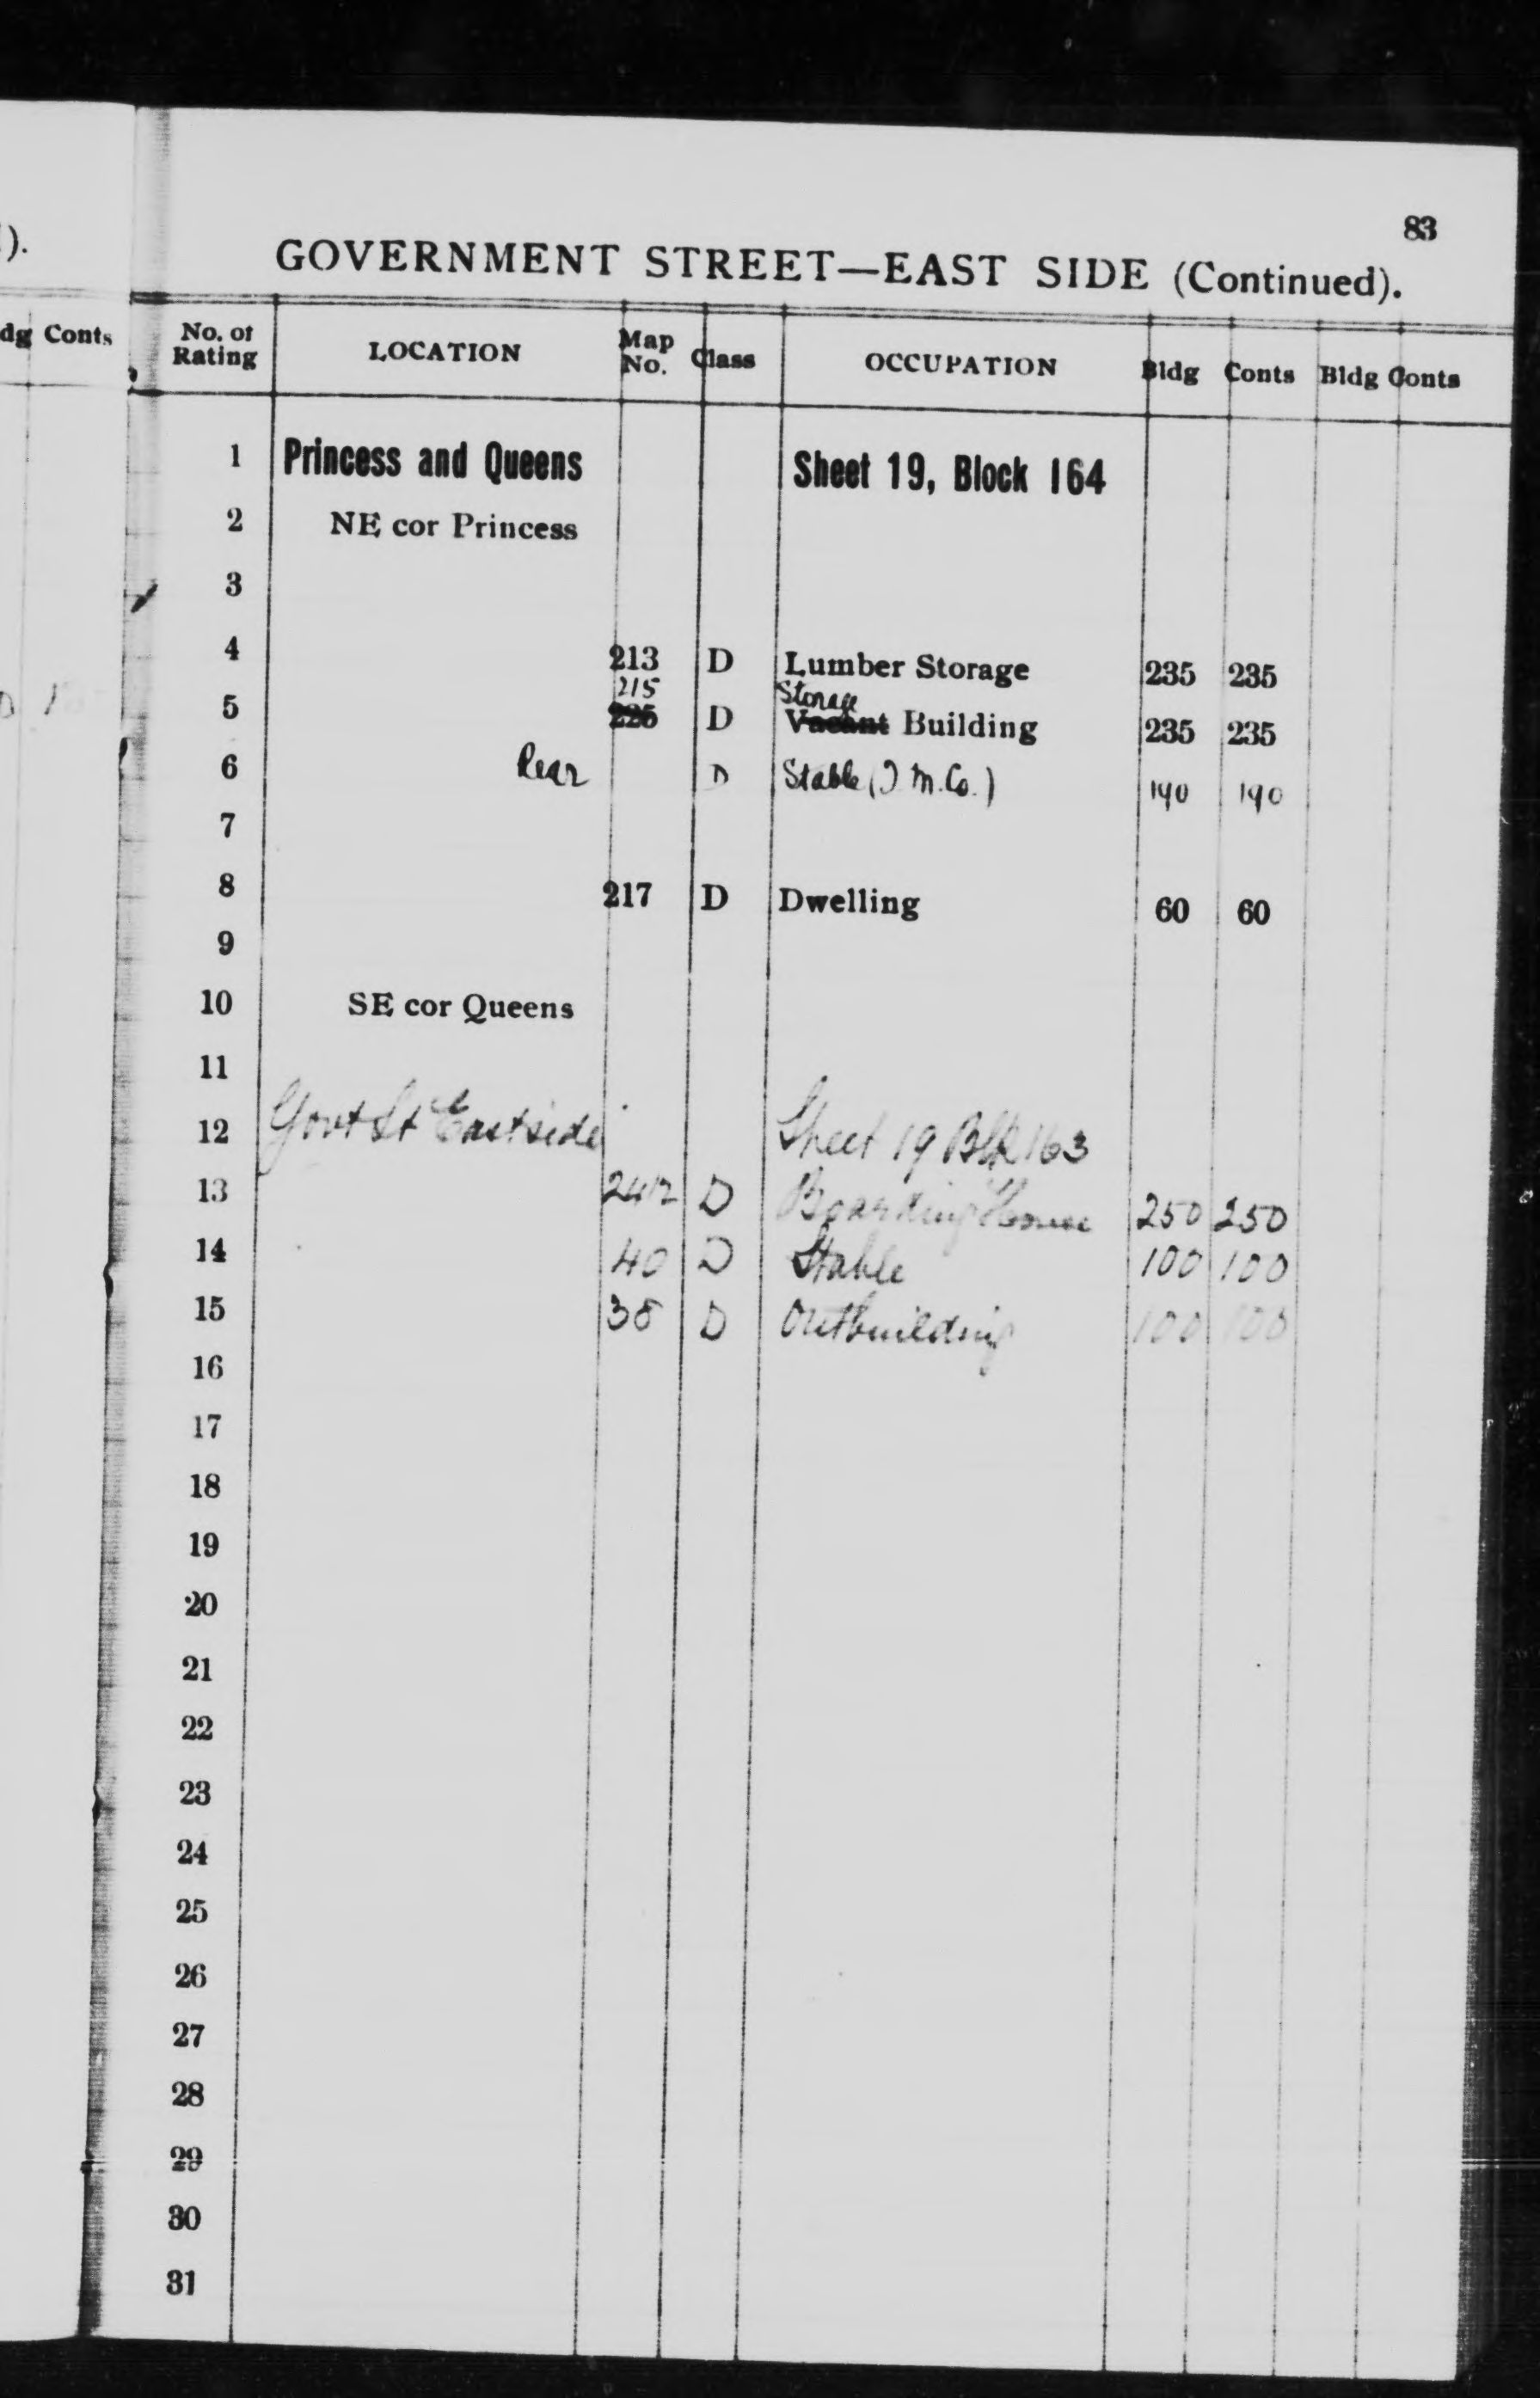 ).
83
GOVERNMENT STREET—EAST SIDE (Continued).
dg Conts
No. of Rating LOCATION Map No. Class OCCUPATION Bldg Conts Bldg Conts
1 Princess and Queens Sheet 19, Block 164
2 NE cor Princess
3
4 213 D Lumber Storage 235 235
215 Storage
5 225 D Vacant Building 235 235
6 Rear D Stable (J M. Co.) 190 190
7
8 217 D Dwelling 60 60
9
10 SE cor Queens
11
12 Govt St Eastside Sheet 19 Blk 163
13 D Boarding House 250 250
14 40 D Stable 100 100
15 38 D Outbuilding 100 100
16
17
18
19
20
21
22
23
24
25
26
27
28
29
30
31